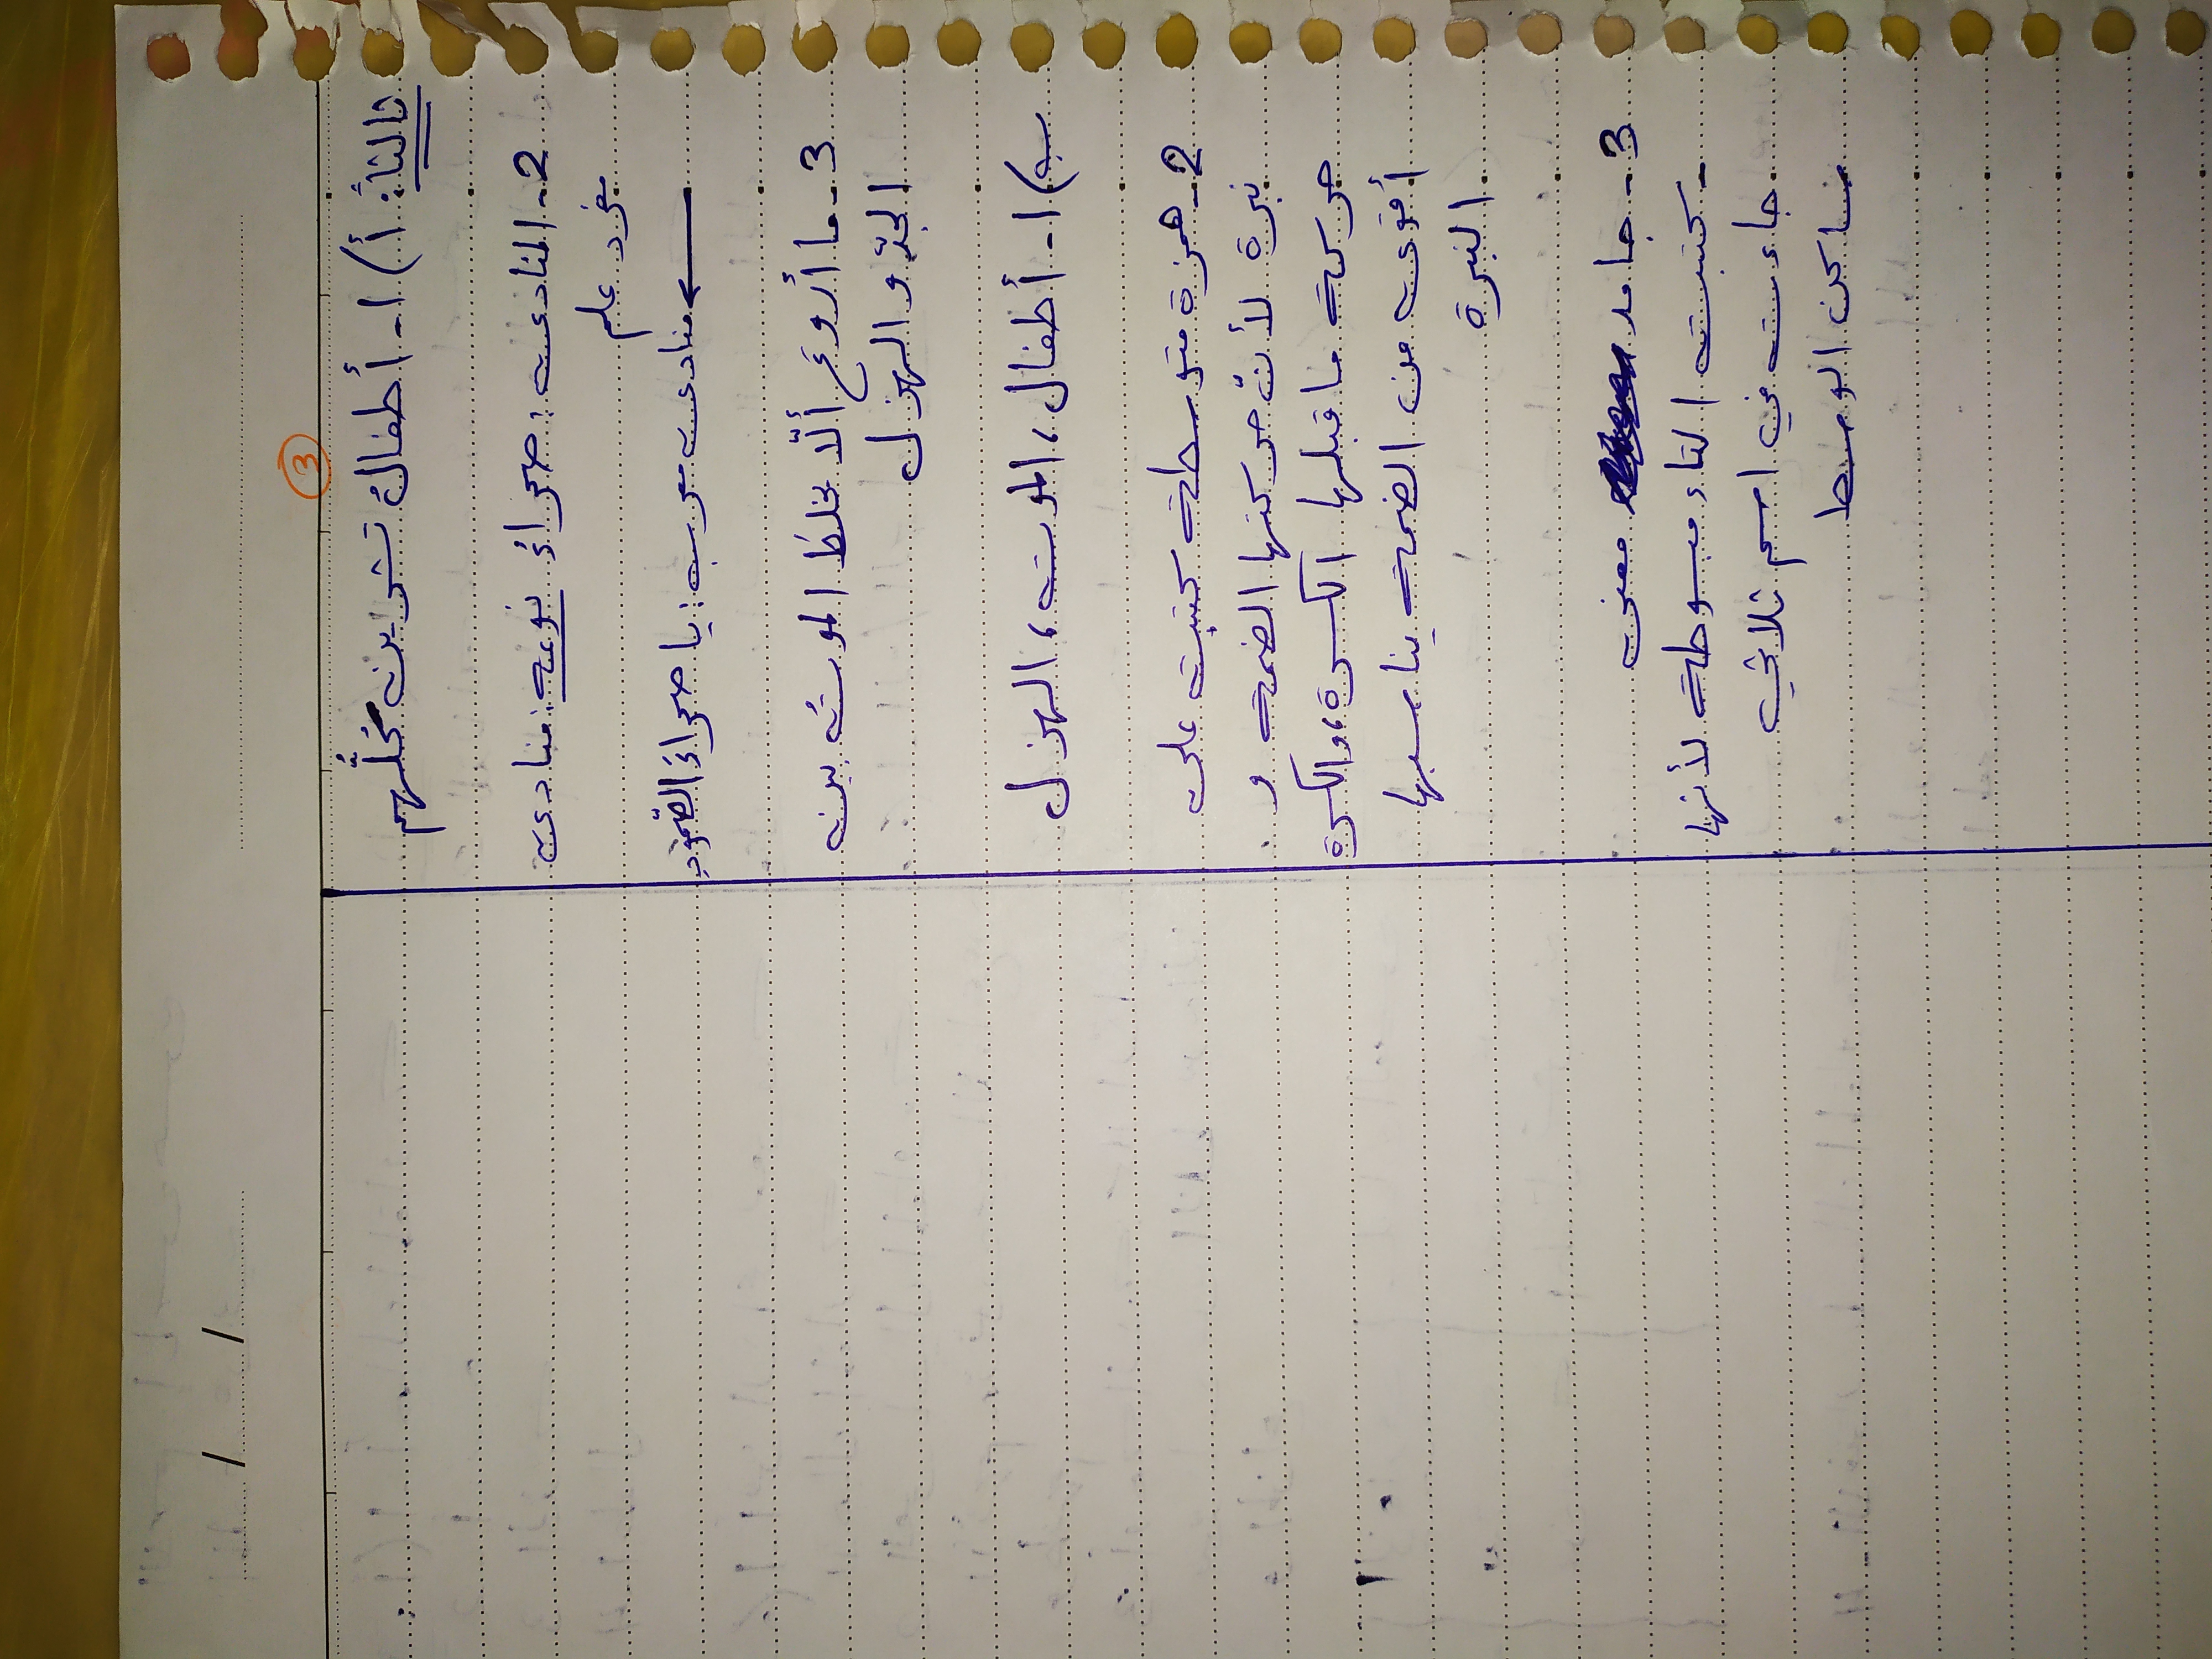 3
ثالثاً: أ) 1- أطفالُ تشرين كُلُّهم
2- المنادى: صحراءُ نوعه: منادى
مفرد علم
منادى معرب: يا صحراءَ الصّمودِ
3- ما أروعَ ألّا يخلطَ الموتُ بين
الجدّ والهزل
ب) 1- أطفال، الموت، الهزل
2- همزة متوسطة كتبت على
نبرة لأنّ حركتها الضمة و
حركة ما قبلها الكسرة، والكسرة
أقوى من الضمة يناسبها
النبرة.
3- جامد معنى
- كتبت التاء مبسوطة لأنها
جاءت في اسم ثلاثي
ساكن الوسط